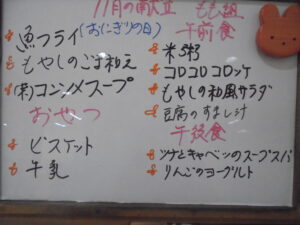 11月の献立 もも組
(おにぎりの日)
魚フライ
もやしのごま和え
(米)コンソメスープ
おやつ
ビスケット
牛乳
午前食
米5粥
コロコロコロッケ
もやしの和風サラダ
豆腐のすまし汁
午後食
ツナとキャベツのスープスパ
りんごのヨーグルト